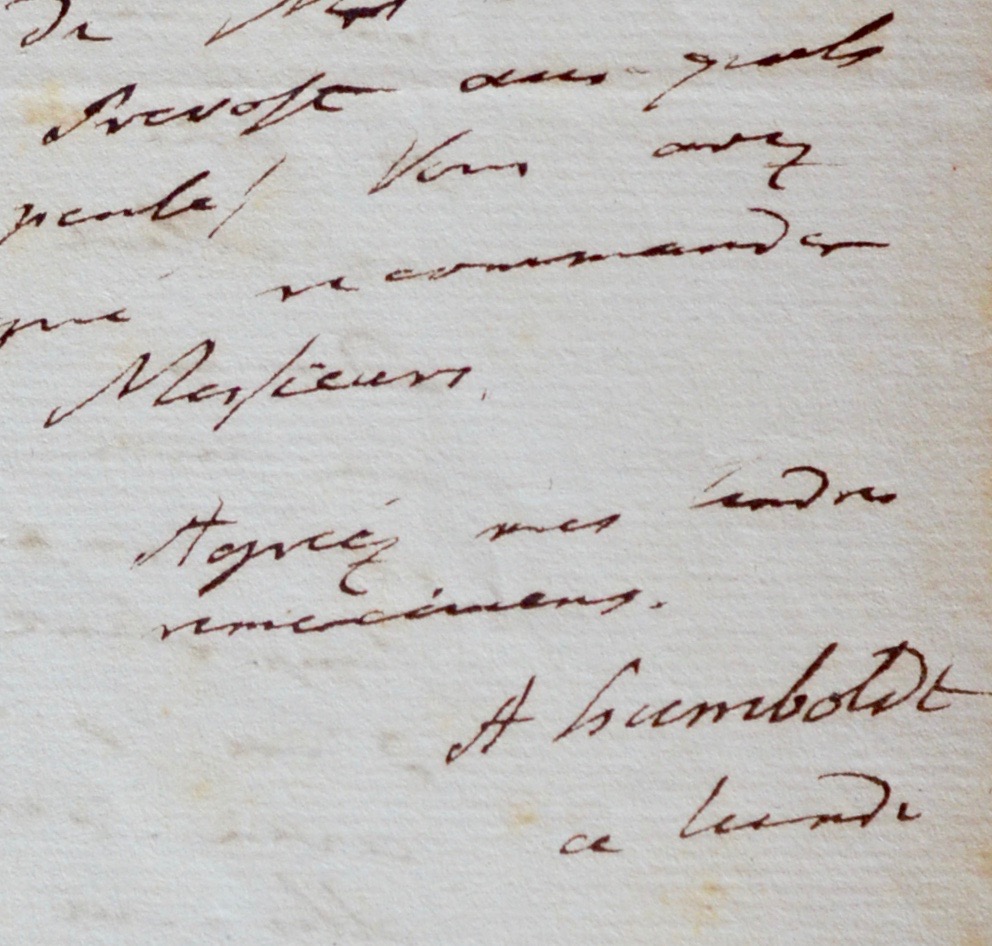 de Mrs
Prevost aux quels
Vous avez
recommander
Messieurs,
Agréez mes tendres
remercimens.
A Humboldt
ce lundi